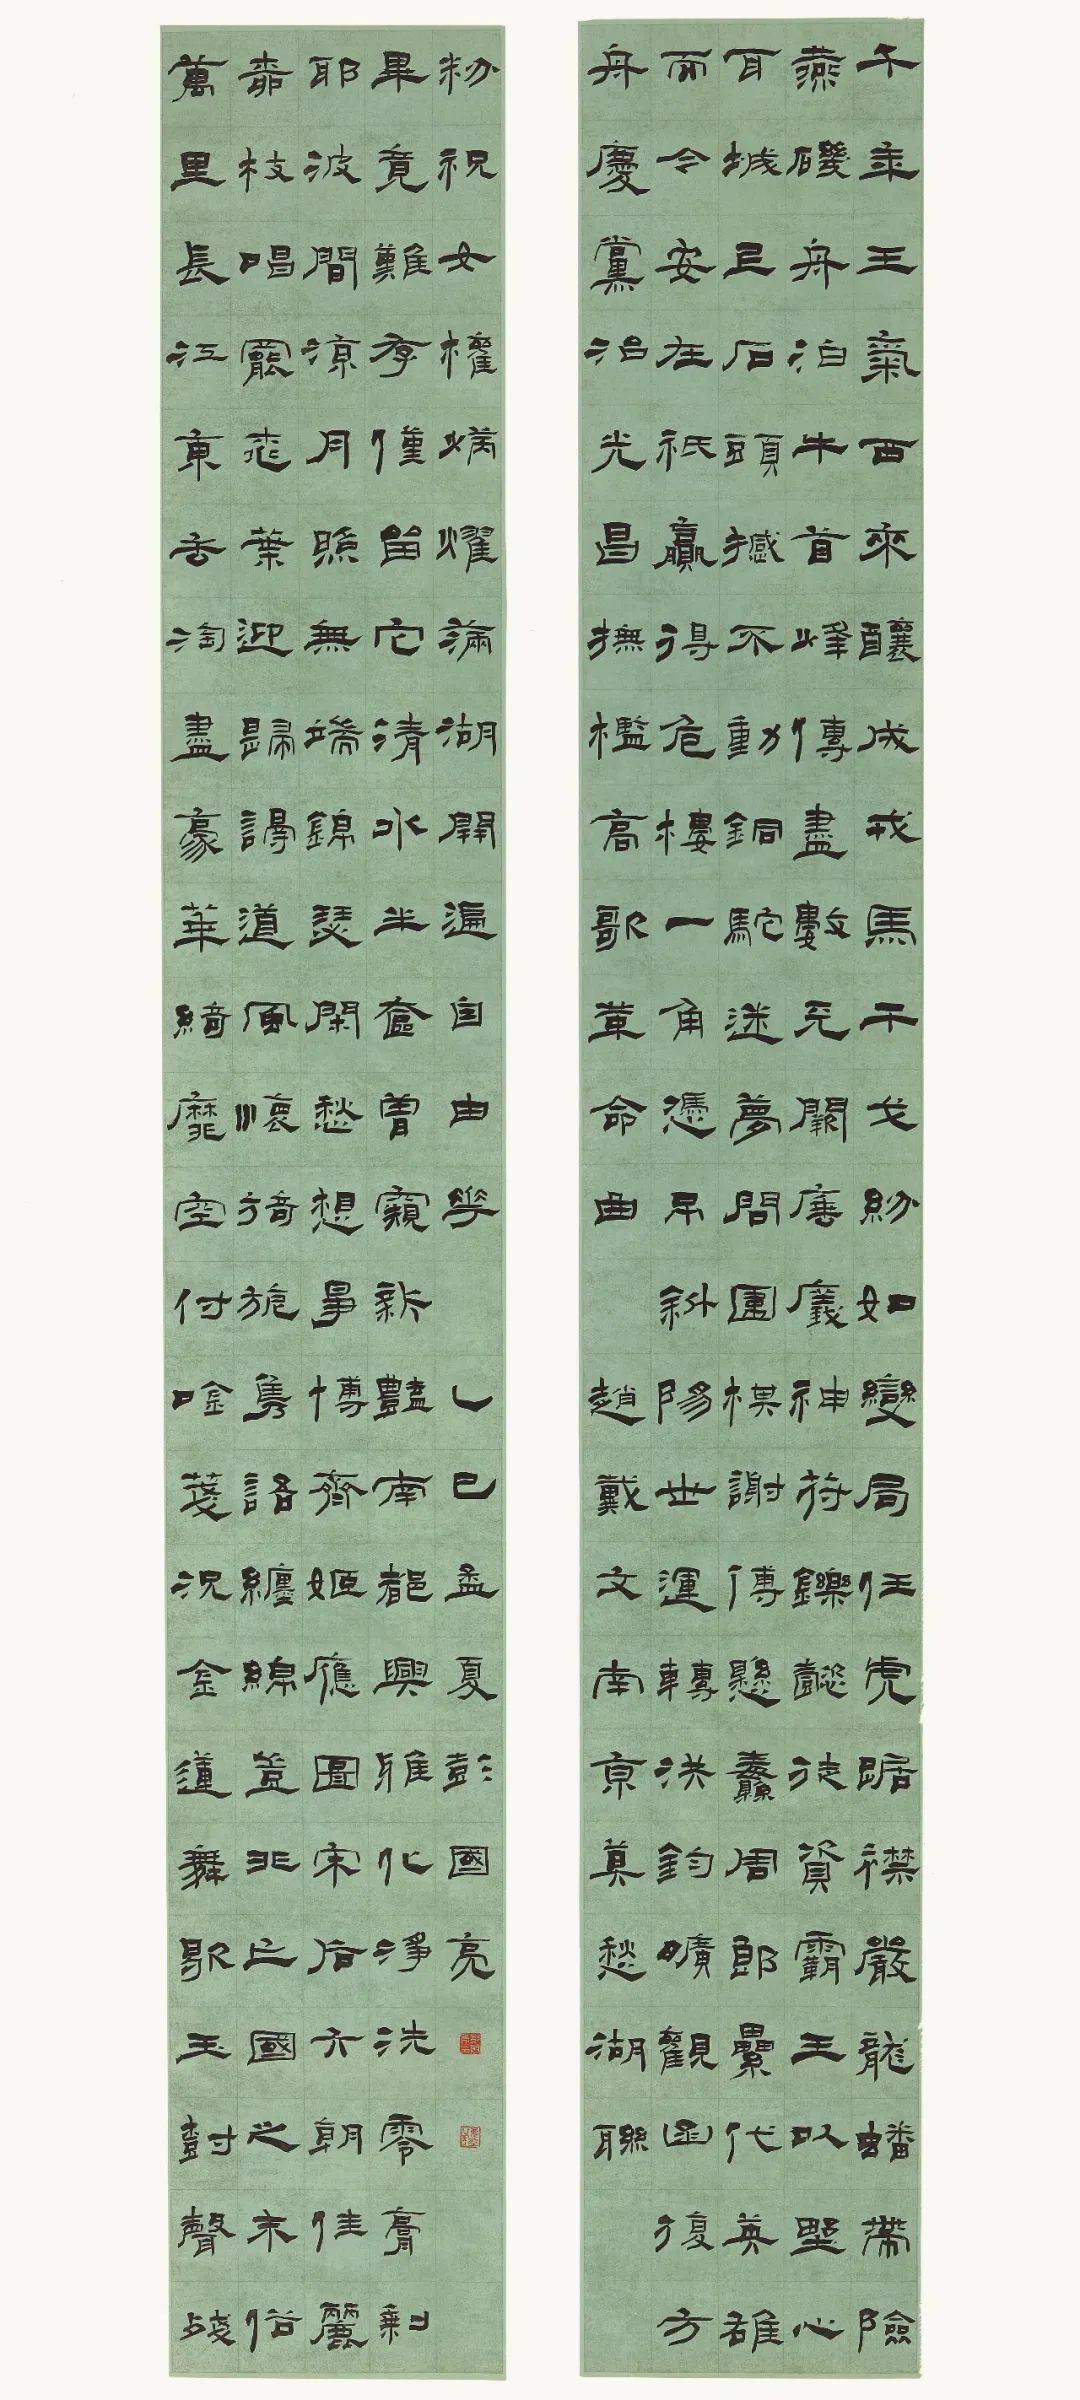 千年王氣西來釀成戎馬干戈紛如變局任虎踞襟嚴龍蟠帶險
燕磯舟泊牛首峰傳盡數闕儀神符鑠懿徒資霸王以野心
耳城已石頭撼不動銅駝迷夢問圍棋謝傅懸纛周郎疊代英雄
而今安在祇贏得危樓一角憑弔斜陽世運轉洪鈞曠觀匡復方
舟慶黨治光昌撫檻高歌革命曲
趙戴文南京莫愁湖聯
萬里長江東去淘盡豪華綺靡空付唫箋況金蓮舞歇玉樹聲殘
枝唱罷桃葉迎歸謾道風懷旖旎雋語纏綿豈非亡國之末俗
耶波間涼月照無端錦瑟閑愁想事博齊姬應圖宋后六朝佳麗
畢竟難存僅留它清水半奩曾窺新豔南都興雅化淨洗零膏剩
粉祝女權炳耀滿湖開遍自由花
乙巳孟夏彭國亮